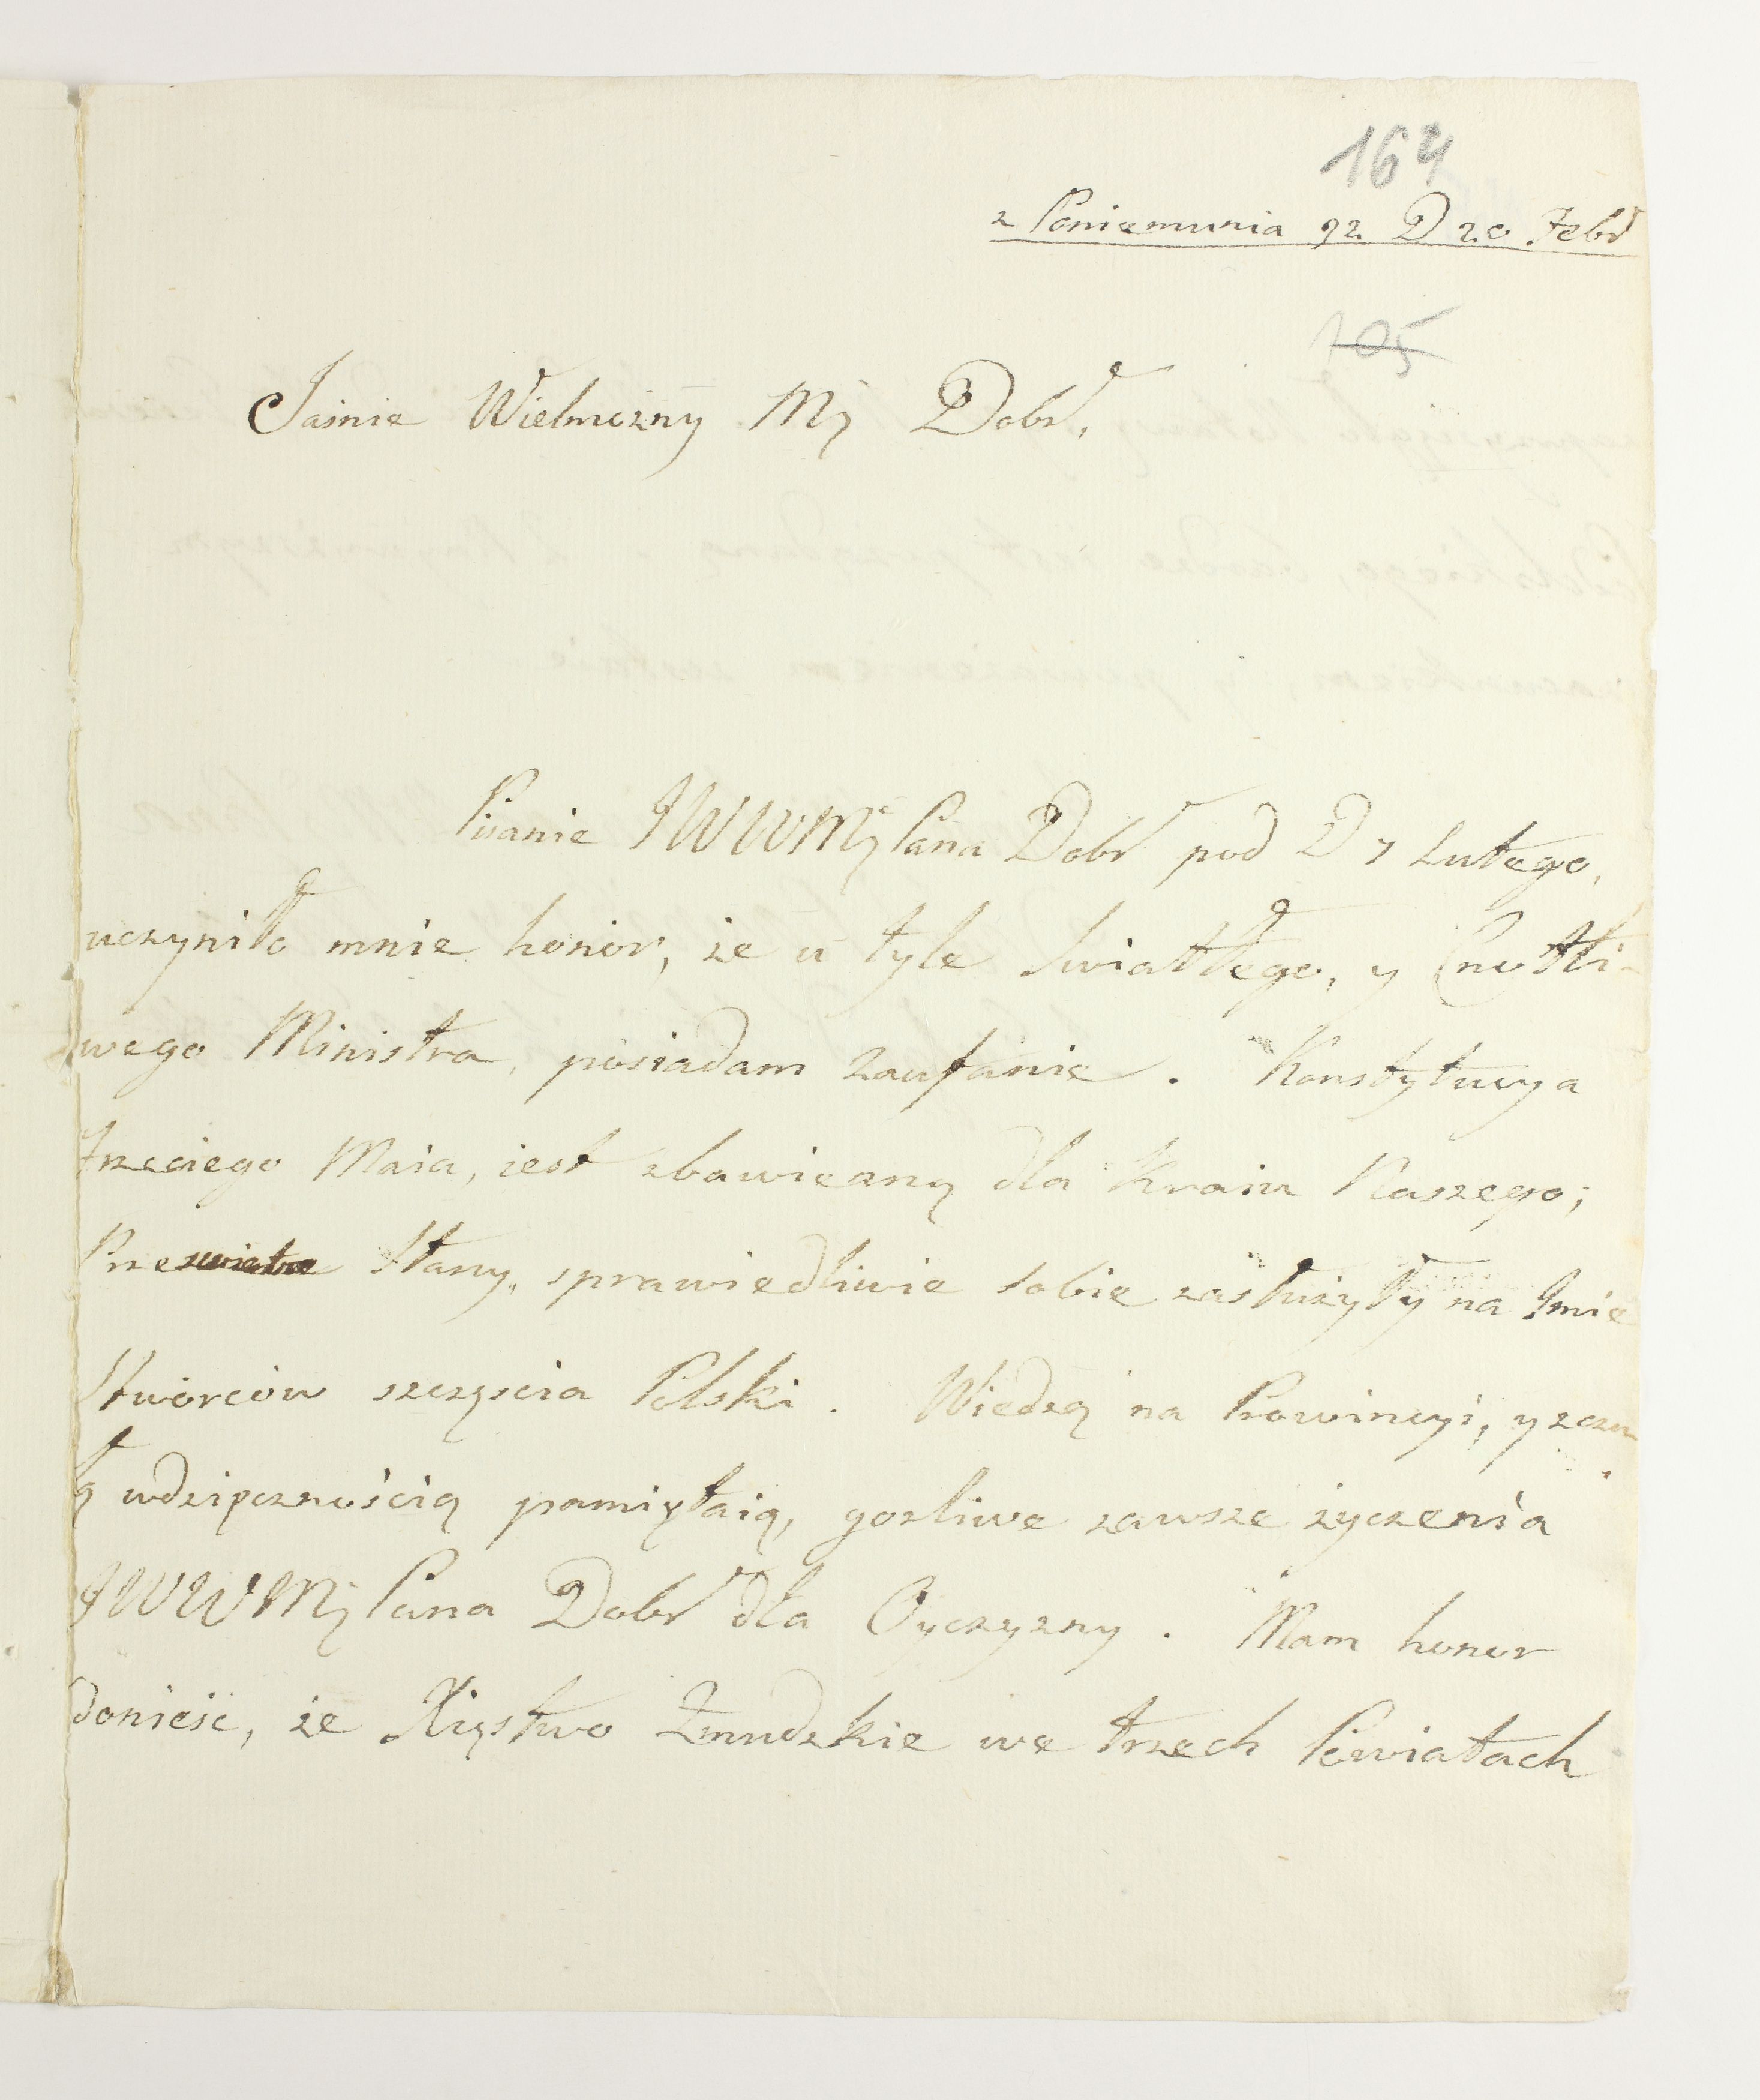 164
z Poniemunia 92 D 20 Febr
105
Jaśnie Wielmożny Mj Dobr,
Pisanie JWWMj Pana Dobr pod D 7 Lutego,
uczyniło mnie honor, że u tyle swiatłego, y Cnotli-
wego Ministra, posiadam zaufanie. Konstytucya
trzeciego Maia, iest zbawienną dla Kraiu Naszego;
Prześwietne Stany, sprawiedliwie sobie zasłużyły na Imie
Stworców szczęscia Polski. Wiedzą na Prowincyi, y z czu
łą wdzięcznością pamiętaią, gorliwe zawsze życzenia
JWWMj Pana Dobr dla Oyczyzny. Mam honor
donieść, że Xięstwo Żmudzkie we trzech Powiatach